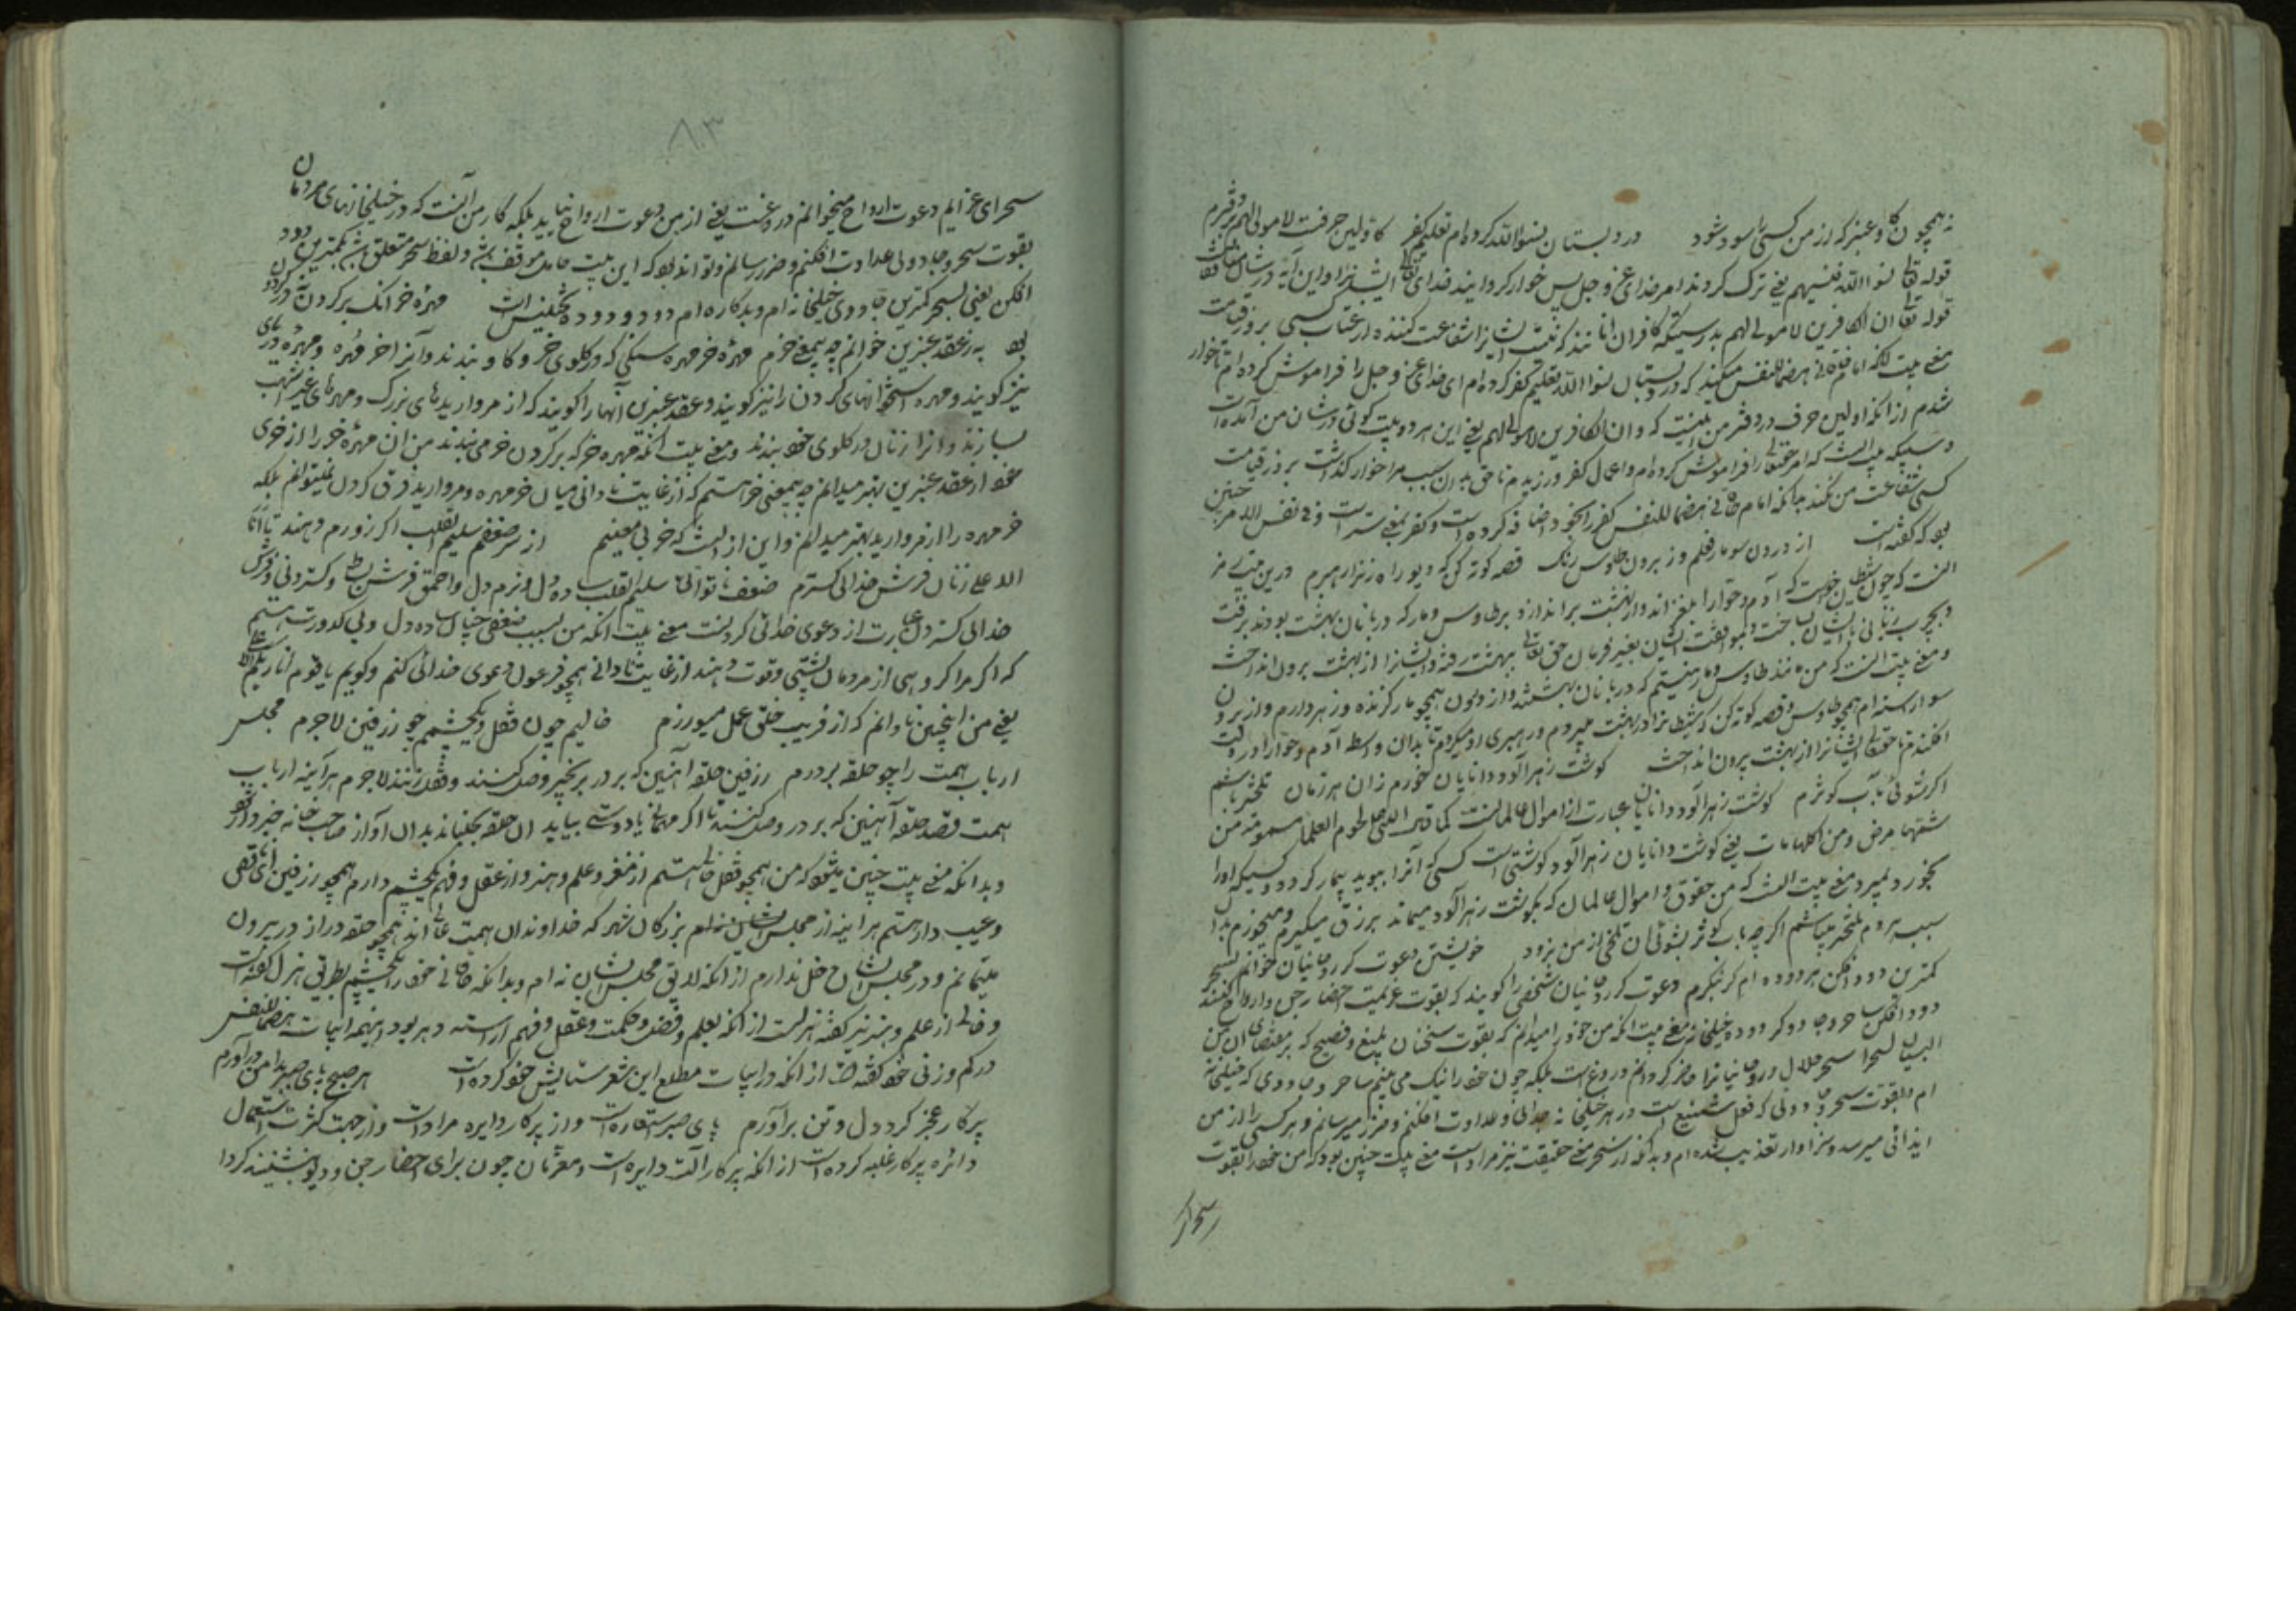 نه همچون گاو عنبر که از من کسی را سود شود در دبستان نسوا الله کرده‌ام تعلیم کفر کاولین حرفست لا مولی لهم بر دفترم
قوله تعالی نسوا الله فنسیهم یعنی ترک کردند امر خدای عز و جل پس خوار گردانیدند خدای تعالی ایشانرا و این آیه در شان
قوله تعالی ان الکافرین لا مولی لهم بدرستیکه کافران مانند که نیست ایشانرا شفاعت کننده از عتاب کسی بروز قیامت
معنی بیت آنکه امام خاقانی هضما للنفس میگوید که در دبستان نسوا الله تعلیم کفر کرده‌ام ای خدای عز و جل را فراموش کرده‌ام تا خوار
شدم از آنکه اولین حرف در دفتر من اینست که و ان الکافرین لا مولی لهم یعنی این هر دو بیت گوئی در شان من آمده است
که امر حقتعالی را فراموش کرده‌ام و اعمال کفر ورزیدم تا حق بدان سبب مرا خوار گذاشت بروز قیامت
کسی شفاعت من نکند چنانکه امام خاقانی هضما للنفس کفر را بخود اضافه کرده است و کفر بمعنی ستر است و فی نفس الامر چنین
بود که گفته است از درون سو مار فعلم وز برون طاوس رنگ قصه کوته کن که دیو راهزن را رهبرم درین بیت رمز
آنست که چون شیطان خواست که آدم و حوا را بلغزاند و از بهشت براندازد بر طاوس و مار که دربانان بهشت بودند برفت
و بچرب زبانی با ایشان ساخت و بموافقت ایشان بغیر فرمان حق تعالی ببهشت رفته و ایشانرا از بهشت برون انداخت
و معنی بیت آنست که من مانند طاوس و مار هستم که دربانان بهشتند و از درون همچو مار گزنده و زهر دارم و از برون
سو آراسته‌ام همچو طاوس و قصه کوته کن که شیطانرا در بهشت میبردم و رهبری او میکردم تا بدان واسطه آدم و حوا را در
افکندم تا حقتعالی ایشانرا از بهشت برون انداخت گوشت زهرآلود دانایان خورم زان هر زمان تلختر باشم
اگر شوئی بآب کوثرم گوشت زهرآلود دانایان عبارت از اموال عالمانست کما قال النبی لحوم العلما مسمومة من
شمها مرض و من اکلها مات یعنی گوشت دانایان زهرآلود گوشتی است کسی که آنرا ببوید بیمار گردد و کسیکه او را
بخورد بمیرد و معنی بیت آنست که من حقوق و اموال عالمان که بگوشت زهرآلود میماند برزق میگیرم و میخورم بدان
سبب هر دم تلختر میباشم اگر چه بآب کوثر بشوئی آن تلخی از من نرود خویشتن دعوت‌گر روحانیان خوانم بسحر
کمترین دود افکن هر دوده‌ام گر بنگرم دعوت‌گر روحانیان شخصی را گویند که بقوت عزیمت احضار جن و ارواح کند
دود افکن ساحر و جادوگر دوده خیلخانه معنی بیت آنکه من خود را میدانم که بقوت سخنان بلیغ و فصیح که بمقتضای ان من
البیان لسحرا سحر حلال و روحانیانرا حاضر گردانم دروغ است بلکه چون خود را نیک می‌بینم ساحر و جادوی که خیلخانه
ام و بقوت سحر و جادوئی که فعل شنیع است در هر خیلخانه جدائی و عداوت افکنم و ضرر میرسانم و هر کسی را از من
ایذائی میرسد و سزاوار تعذیب شده‌ام و بدانکه از سحر معنی حقیقت نیز مراد است معنی بیت چنین بود که من خود را بقوت
سحر ای
۸۰۳
سحر ای عزایم دعوت ارواح میخوانم دروغست یعنی از من دعوت ارواح نیاید بلکه کار من آنست که در خیلخانهای مردمان
بقوت سحر و جادوئی عداوت افکنم و ضرر رسانم و تواند بود که این بیت موقف باشد و لفظ سحر متعلق باشد بکمترین دود
افکن یعنی بسحر کمترین جادوی خیلخانه‌ام و بدکاره‌ام دود و دوده تجنیس است مهره خر آنک بر گردن نه در گردن
بود به ز عقد عنبرین خوانم چه بیمعنی خرم مهره خر مهره سنگی که در گلوی خر و گاو بندند و آنرا خر مهره و مهره
نیز گویند و مهره استخوانهای گردن را نیز گویند و عقد عنبرین آنها را گویند که از مرواریدهای بزرگ و مهرهای عنبر اشهب
سازند و آنرا زنان در گلوی خود بندند و معنی بیت آنکه مهره خر که بر گردن خر می بندند من آن مهره خر را از خری
خود از عقد عنبرین بهتر میدانم چه بیمعنی خر هستم که از غایت نادانی میان خر مهره و مروارید فرق کردن نمیتوانم بلکه
خر مهره را از مروارید بهتر میدانم و این از آنست که خر بی معنیم از سر ضعفم سلیم القلب اگر زورم دهند تا انا
الاعلی زنان فرش خدائی گسترم ضعف ناتوانی سلیم القلب ساده دل و نرم دل و احمق فرش بساط و گستردنی و فرش
خدائی گستردن عبارت از دعوی خدائی کردنست معنی بیت آنکه من بسبب ضعفی چنان ساده دل و بی کدورت هستم
که اگر مرا گروهی از مردمان پشتی و قوت دهند از غایت نادانی همچو فرعون دعوی خدائی کنم و گویم یا قوم انا ربکم الاعلی
یعنی من اینچنین نادانم که از فریب خلق عمل میورزم خالیم چون قفل و یکچشمم چو زرفین لاجرم مجلس
ارباب همت را چو حلقه بر درم زرفین حلقه آهنین که بر در بزنجیر وصل کنند و قفل زنند لاجرم هرآینه ارباب
همت قصد حلقه آهنین که بر در وصل کنند تا اگر مهمانی یا دوستی بیاید آن حلقه بجنباند بدان آواز صاحب خانه خبردار شود
و بدانکه معنی بیت چنین میشود که من همچو قفل خالی هستم از مغز و علم و هنر و از عقل و فهم یکچشم دارم همچو زرفین ای ناقصی
و عیب دار هستم هرآینه از مجلس ایشان نه‌ام بزرگان شهر که خداوندان همت عالی اند همچو حلقه در از در بیرون
میمانم و در مجلس ایشان دخل ندارم از آنکه لائق مجلس ایشان نه‌ام و بدانکه خاقانی خود را یکچشم بطریق هزل گفته است
و خالی از علم و هنر نیز گفته هزلست از آنکه بعلم و فضل و حکمت و عقل و فهم آراسته و هر بود اینهمه ابیات هضما للنفس
در کم وزنی خود گفته است از آنکه در ابیات مطلع این شعر ستایش خود کرده است هر صبح پای صبر بدامن درآورم
پرگار عجز گرد دل و تن برآورم پای صبر استعاره است و از پرگار دایره مراد است و از جهت کثرت استعمال
دائره پرگار غلبه کرده است از آنکه پرگار آلت دایره است و مغربان چون برای احضار جن و دیو بنشینند گردا